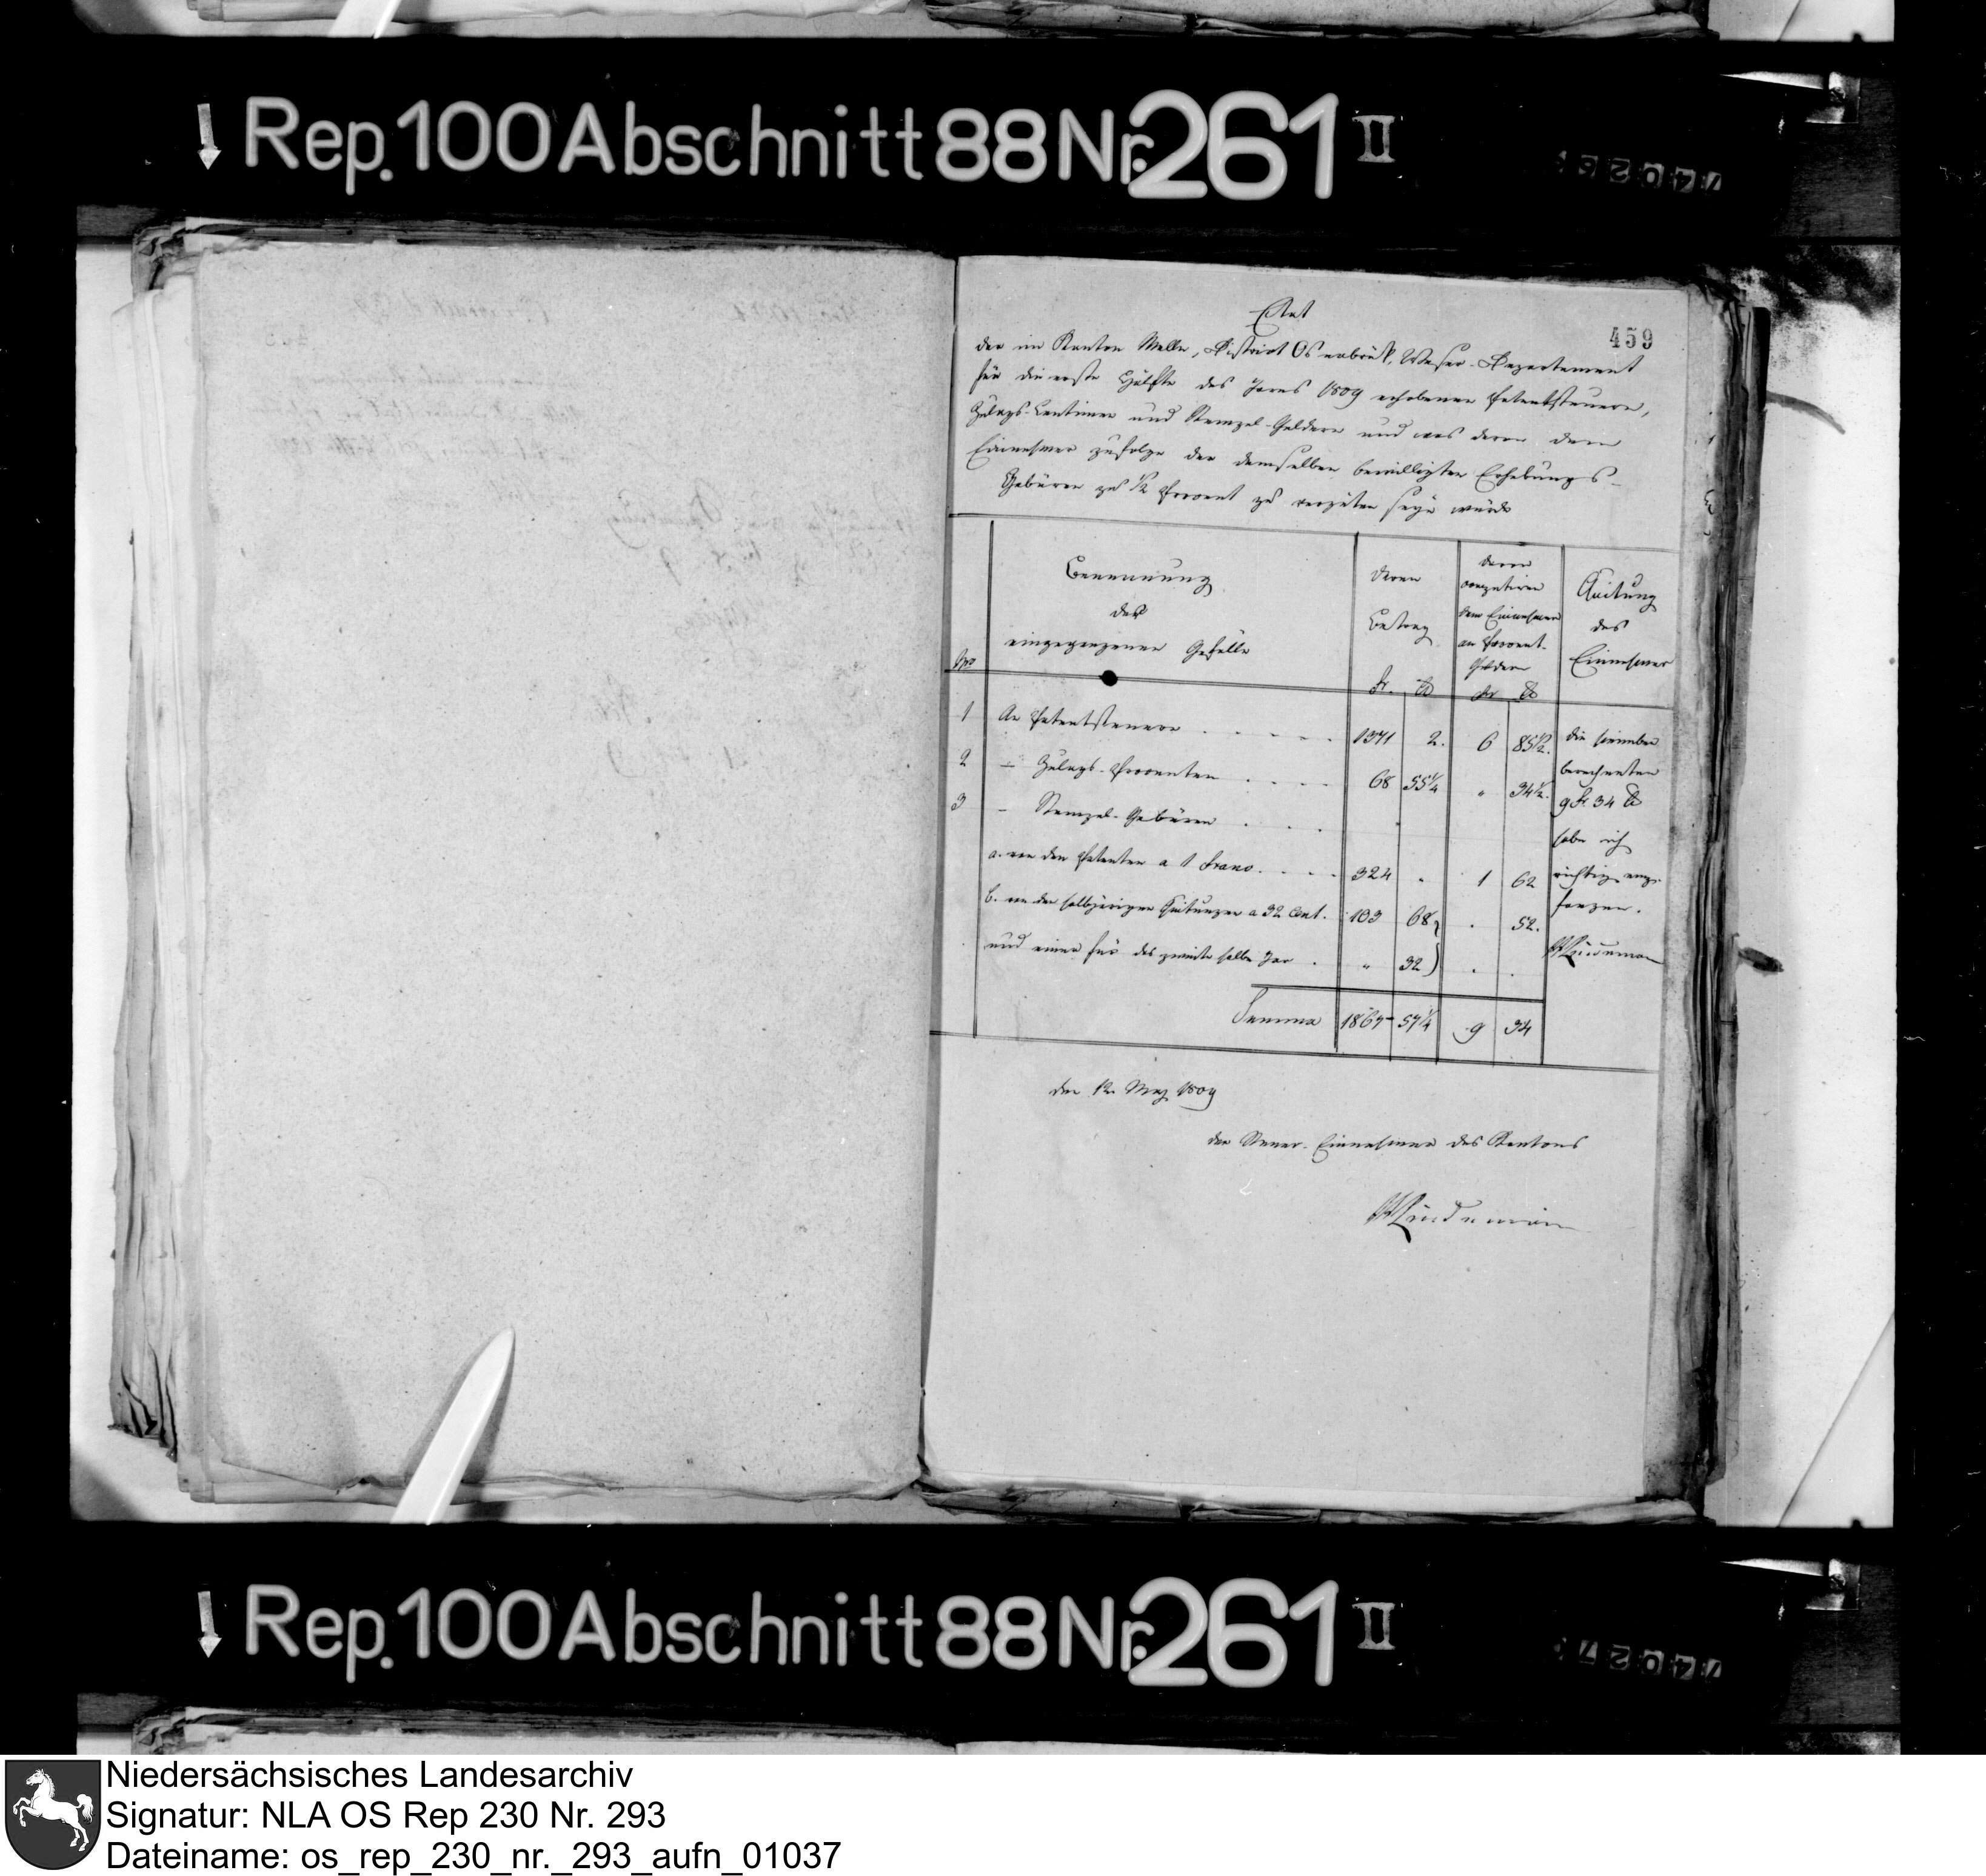 Rep. 100 Abschnitt 88 Nr. 261 II
459
Etat
der im Kanton Melle, District Osnabrük, Weser-Departement
für die erste Hälfte des Jares 1809 erhobenen Patentsteuern,
Zulags-Centimen und Stempel-Geldern und was davon dem
Einnehmer zufolge der demselben bewilligten Erhebungs-
Gebüren zu ½ Procent zu vergüten seyn würde
Nro
Benennung
der
eingegangenen Gefälle
deren
Betrag
fr. Ct
davon
competiren
dem Einnehmer
an Procent-
Geldern
fr Ct
Quitung
des
Einnehmer
1 An Patentsteuern . . . . . 1371 2. 6 85½.
2 — Zulags-Procenten . . . . 68 55¼ " 34½.
3 — Stempel-Gebüren . . .
a. von den Patenten a 1 Franc. . . . 324 . 1 62
b. von den halbjärigen Quitungen a 32 Cent. 103 68 . 52.
und einer für das zweite halbe Jar . " 32 . .
Summa 1867 57¼ 9 34
die hieneben
berechneten
9 fr. 34 Ct
habe ich
richtig emp-
fangen.
Lindeman
den 12. May 1809
der Steuer-Einnehmer des Kantons
Lindeman
Rep. 100 Abschnitt 88 Nr. 261 II
Niedersächsisches Landesarchiv
Signatur: NLA OS Rep 230 Nr. 293
Dateiname: os_rep_230_nr._293_aufn_01037